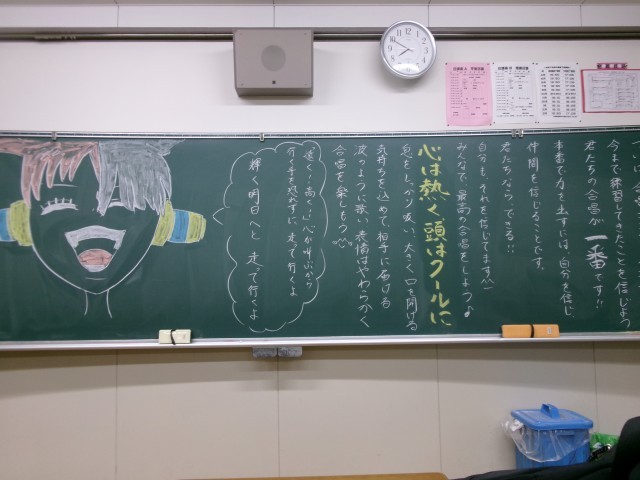 今まで練習してきたことを信じよう
君たちの合唱が一番です!!
本番で力を出すには、自分を信じ、
仲間を信じることです。
君たちなら、できる!!
自分も、それを信じてます^^)
みんなで、最高の合唱をしよう♪
心は熱く頭はクールに
息をしっかり吸い、大きく口を開ける
気持ちを込めて、相手に届ける
波のように歌い、表情はやわらかく
合唱を楽しもう^^
"遠く!高く!"心が叫ぶから
行く手を恐れずに、走って行くよ
輝く明日へと 走って行くよ